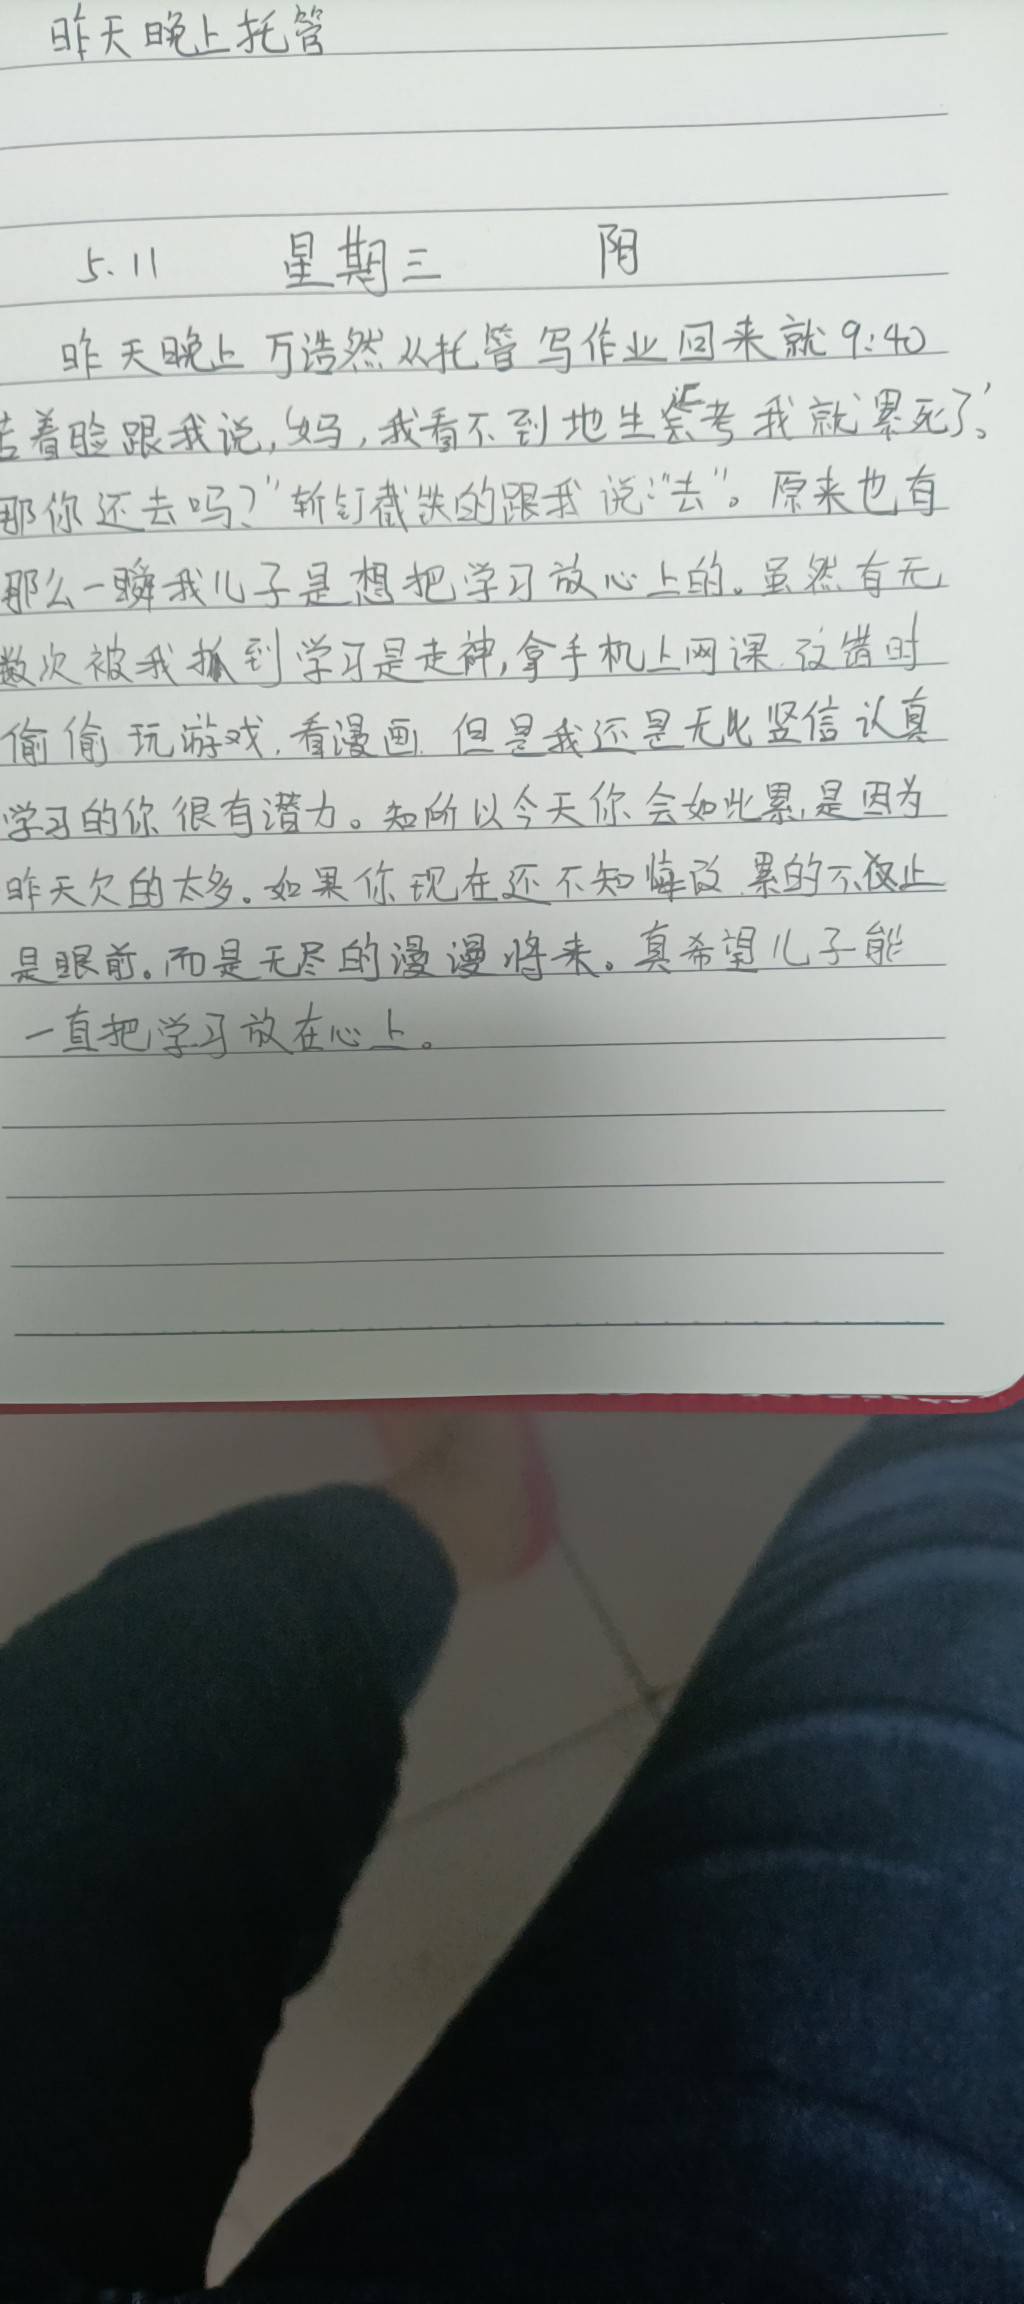 昨天晚上托管
5.11 星期三 阳
昨天晚上万浩然从托管写作业回来就9:40
苦着脸跟我说,“妈,我看不到地生会考我就累死了”。
那你还去吗?”斩钉截铁的跟我说:“去”。原来也有
那么一瞬我儿子是想把学习放心上的。虽然有无
数次被我抓到学习是走神,拿手机上网课.改错时
偷偷玩游戏.看漫画.但是我还是无比坚信认真
学习的你很有潜力。知所以今天你会如此累,是因为
昨天欠的太多。如果你现在还不知悔改.累的不仅止
是眼前。而是无尽的漫漫将来。真希望儿子能
一直把学习放在心上。